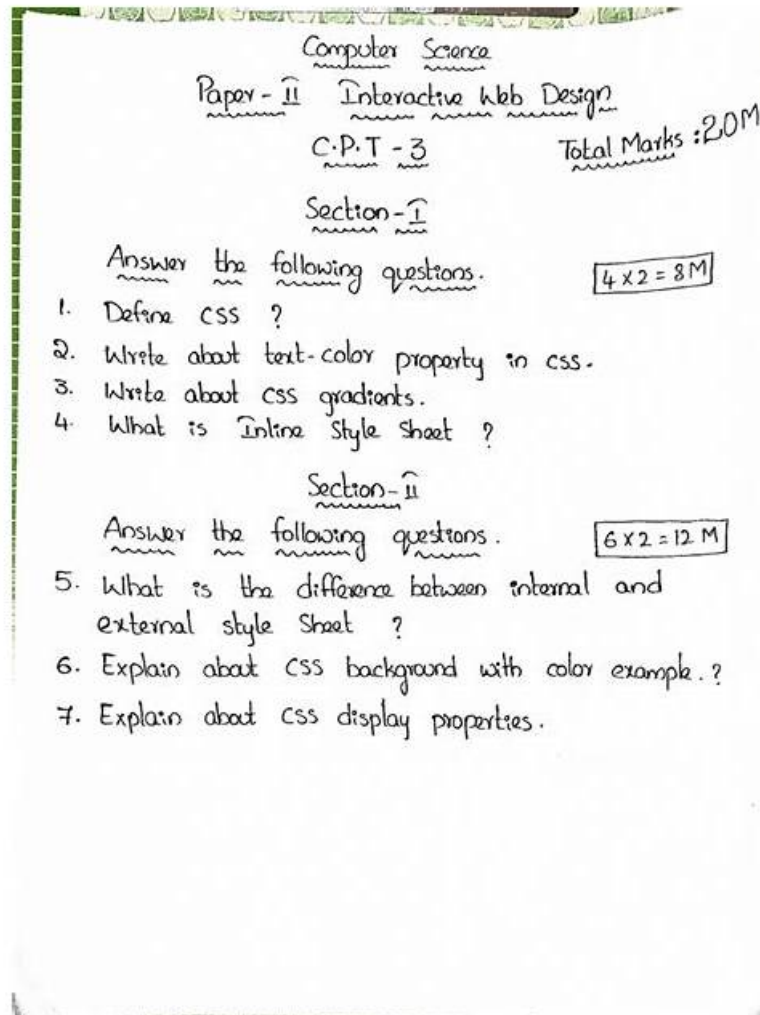 Computer Science
Paper - II Interactive Web Design
C.P.T - 3
Total Marks : 20M
Section - I
Answer the following questions.
4 x 2 = 8M
1. Define CSS ?
2. Write about text-color property in css.
3. Write about CSS gradients.
4. What is Inline Style Sheet ?
Section - II
Answer the following questions.
6 x 2 = 12 M
5. What is the difference between internal and
external style Sheet ?
6. Explain about CSS background with color example. ?
7. Explain about CSS display properties.